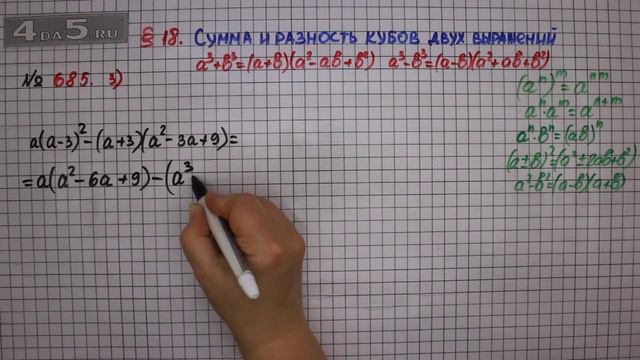 4DA5.RU
§ 18. Сумма и разность кубов двух выражений
a³+b³=(a+b)(a²-ab+b²) a³-b³=(a-b)(a²+ab+b²)
№ 685. 3)
(aⁿ)ᵐ=aⁿᵐ
aⁿ·aᵐ=aⁿ⁺ᵐ
aⁿ·bⁿ=(ab)ⁿ
(a±b)²=(a²±2ab+b²)
a²-b²=(a-b)(a+b)
a(a-3)²-(a+3)(a²-3a+9)=
=a(a²-6a+9)-(a³